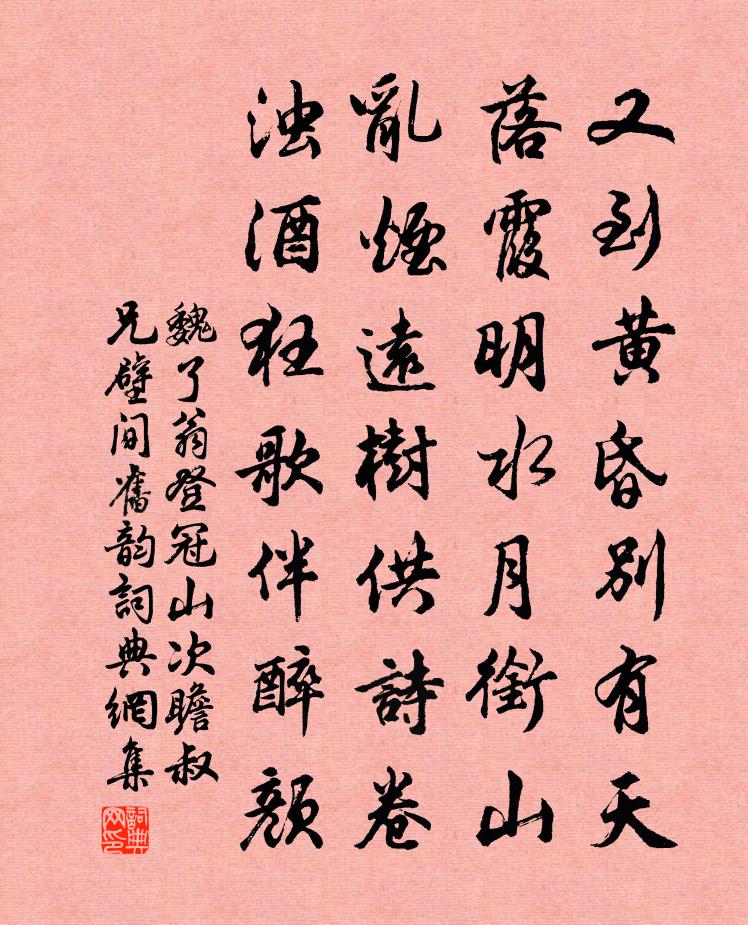 又到黄昏别有天
落霞明水月銜山
亂煙遠樹供詩卷
浊酒狂歌伴醉颜
魏了翁登冠山次瞻叔
兄壁间舊韵詞典網集
詞典网印